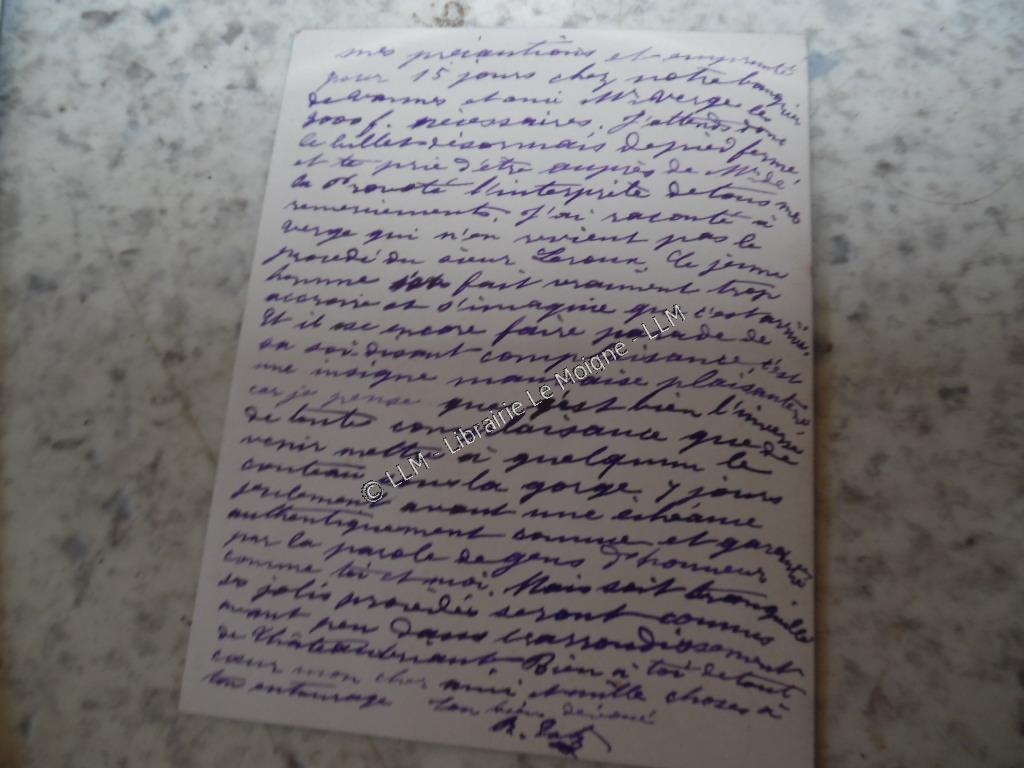 mes précautions et emprunté
pour 15 jours chez notre banquier
de Vannes et ami Mr Verge les
3000 f. nécessaires. J'attends donc
le billet désormais de pied ferme,
et te prie d'être auprès de Mr de
la Provoté l'interprète de tous mes
remerciements. J'ai raconté à
Verge qui n'en revient pas le
procédé du sieur Leroux. Ce jeune
homme fait vraiment trop
et s'imagine que c'est arrivé.
Et il ose encore faire parade de
sa soi-disant complaisance, c'est
une insigne mauvaise plaisanterie
car je pense que c'est bien l'inverse
de toute complaisance que de
venir mettre à quelqu'un le
couteau sous la gorge, 7 jours
seulement avant une échéance
authentiquement connue et garantie
par la parole de gens d'honneur
comme toi et moi. Mais soit tranquille
ses jolis procédés seront connus
avant peu dans l'arrondissement
de Châteaubriant. Bien à toi de tout
cœur mon cher ami et mille choses à
ton entourage Ton bien dévoué
R.
© LLM - Librairie Le Moigne - LLM